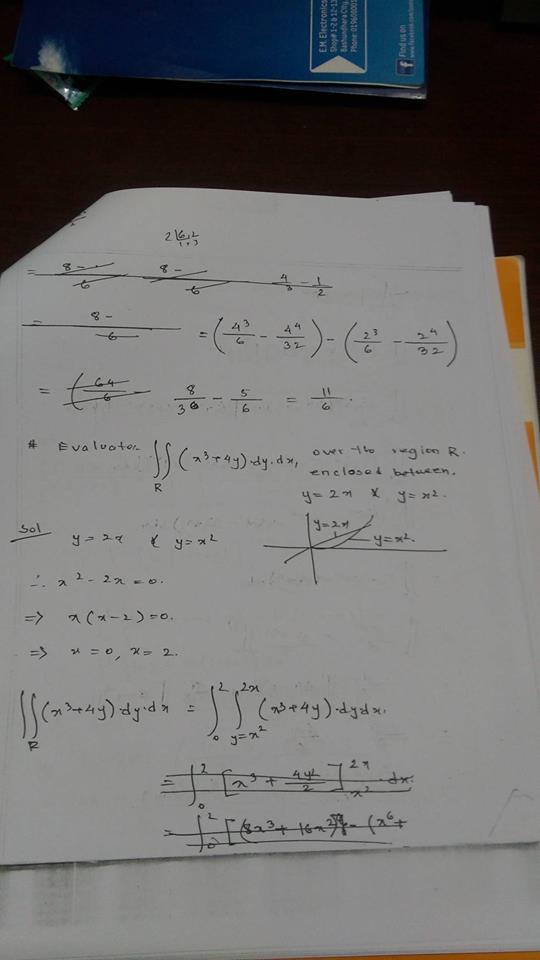 E.M. Electronics
Shop# 1-2 & 12-13
Bashundhara City,
Find us on
2 | 6, 2
= 8 - / 6 8 - / 6 4/3 - 1/2
= 8 - / 6 = (4³/6 - 4⁴/32) - (2³/6 - 2⁴/32)
= (64/6 8/3 - 5/6 = 11/6.
# Evaluate ∬_R (x³+4y)·dy·dx, over the region R.
enclosed between.
y = 2x & y = x².
Sol y = 2x & y = x²
y=2x
y=x².
∴ x² - 2x = 0.
=> x(x-2) = 0.
=> x = 0, x = 2.
∬_R (x³+4y)·dy·dx = ∫_0^2 ∫_{y=x²}^{2x} (x³+4y)·dydx.
= ∫_0^2 [x³ + 4y²/2]_{x²}^{2x} · dx.
= ∫_0^2 [(8x³ + 16x²) - (x⁶ +